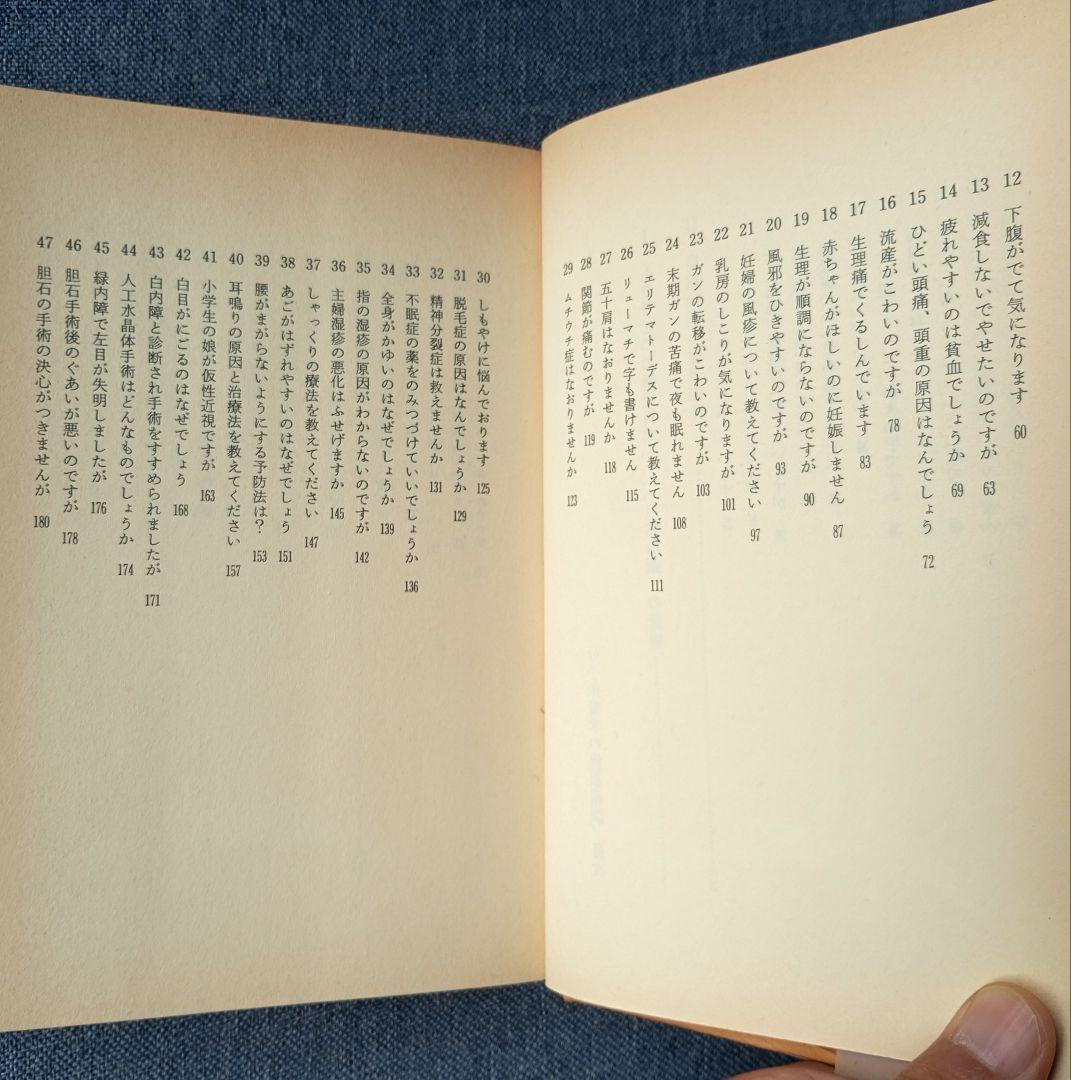 12 下腹がでて気になります 60
13 減食しないでやせたいのですが 63
14 疲れやすいのは貧血でしょうか 69
15 ひどい頭痛、頭重の原因はなんでしょう 72
16 流産がこわいのですが 78
17 生理痛でくるしんでいます 83
18 赤ちゃんがほしいのに妊娠しません 87
19 生理が順調にならないのですが 90
20 風邪をひきやすいのですが 93
21 妊婦の風疹について教えてください 97
22 乳房のしこりが気になりますが 101
23 ガンの転移がこわいのですが 103
24 末期ガンの苦痛で夜も眠れません 108
25 エリテマトーデスについて教えてください 111
26 リューマチで字も書けません 115
27 五十肩はなおりませんか 118
28 関節が痛むのですが 119
29 ムチウチ症はなおりませんか 123
30 しもやけに悩んでおります 125
31 脱毛症の原因はなんでしょうか 129
32 精神分裂症は救えませんか 131
33 不眠症の薬をのみつづけていいでしょうか 136
34 全身がかゆいのはなぜでしょうか 139
35 指の湿疹の原因がわからないのですが 142
36 主婦湿疹の悪化はふせげますか 145
37 しゃっくりの療法を教えてください 147
38 あごがはずれやすいのはなぜでしょう 151
39 腰がまがらないようにする予防法は? 153
40 耳鳴りの原因と治療法を教えてください 157
41 小学生の娘が仮性近視ですが 163
42 白目がにごるのはなぜでしょう 168
43 白内障と診断され手術をすすめられましたが 171
44 人工水晶体手術はどんなものでしょうか 174
45 緑内障で左目が失明しましたが 176
46 胆石手術後のぐあいが悪いのですが 178
47 胆石の手術の決心がつきませんが 180